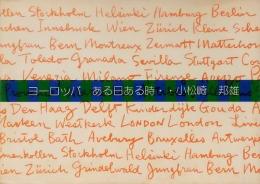 ollen Stockholm Helsinki Hamburg Berlin
chen Innsbruck Wien Zürich Kleine Sche
Jungfrau Bern Montreux Zermatt Matterho
la Toledo Granada Sevilla Stuttgart Co
Venezia Milano Firenze Arezzo
ヨーロッパ ある日ある時・・小松崎 邦雄
Den Haag Delft Kinderdijk Gouda A
Masleen Westkerk LONDON London
Bristol Bath Avebury Bruxelles Antwerpe
menkollen Stockholm Helsinki Hamburg Be
Wien Zürich Grindelwald Jungfrau Bern M